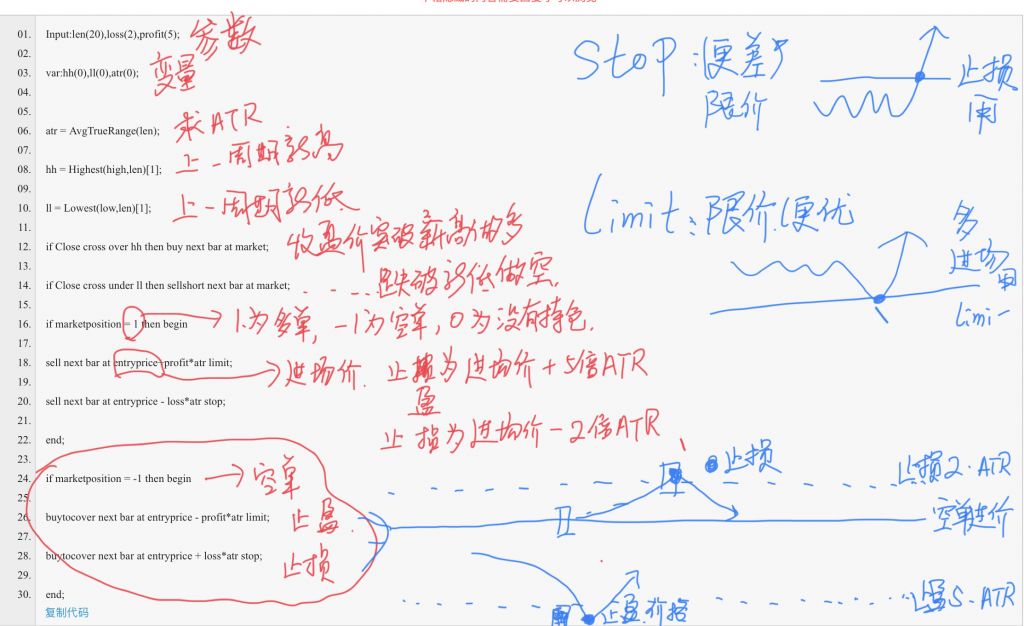 01. Input:len(20),loss(2),profit(5); 参数
02.
03. var:hh(0),ll(0),atr(0); 变量
04.
05.
06. atr = AvgTrueRange(len); 求ATR
07.
08. hh = Highest(high,len)[1]; 上一周期新高
09.
10. ll = Lowest(low,len)[1]; 上一周期新低
11.
12. if Close cross over hh then buy next bar at market; 收盘价突破新高做多
13.
14. if Close cross under ll then sellshort next bar at market; 跌破新低做空.
15.
16. if marketposition = 1 then begin 1为多单, -1为空单, 0为没有持仓.
17.
18. sell next bar at entryprice+profit*atr limit; 进场价. 止损为进场价+5倍ATR
盈
19.
20. sell next bar at entryprice - loss*atr stop;
21.
止损为进场价-2倍ATR
22. end;
23.
24. if marketposition = -1 then begin 空单
25.
26. buytocover next bar at entryprice - profit*atr limit; 止盈.
27.
28. buytocover next bar at entryprice + loss*atr stop; 止损
29.
30. end;
复制代码
Stop:(更差)
限价
止损
用
Limit:限价.更优
多
进场
用
Limi
止损
止损2.ATR
空单进价
止盈.价格
止盈5.ATR